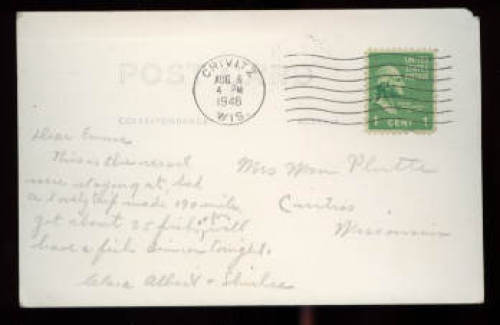 POST CARD
CRIVITZ
AUG 6
4 PM
1946
WIS.
UNITED STATES POSTAGE
1 CENT 1
CORRESPONDENCE
Dear Emma
This is the resort
were staying at, had
a lovely trip made 190 mile,
got about 25 fish, will
have a fish dinner tonight.
Clara Albert + Shirlee
Mrs Wm Platte
Wisconsin